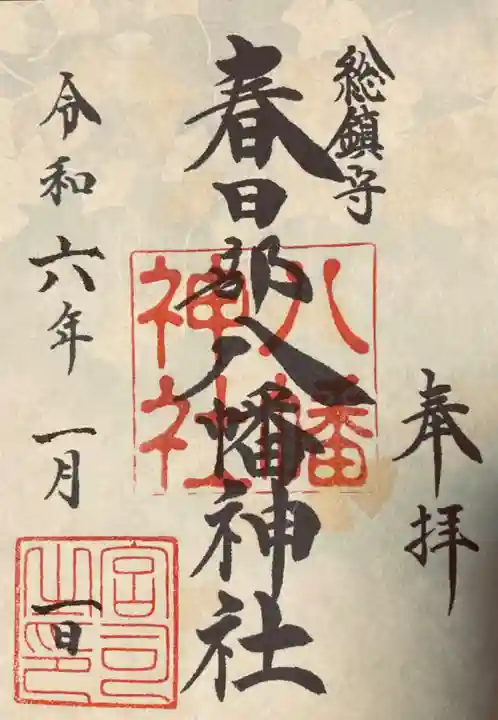 奉拝
総鎮守
春日部八幡神社
八幡
神社
令和六年一月一日
宮司
之印